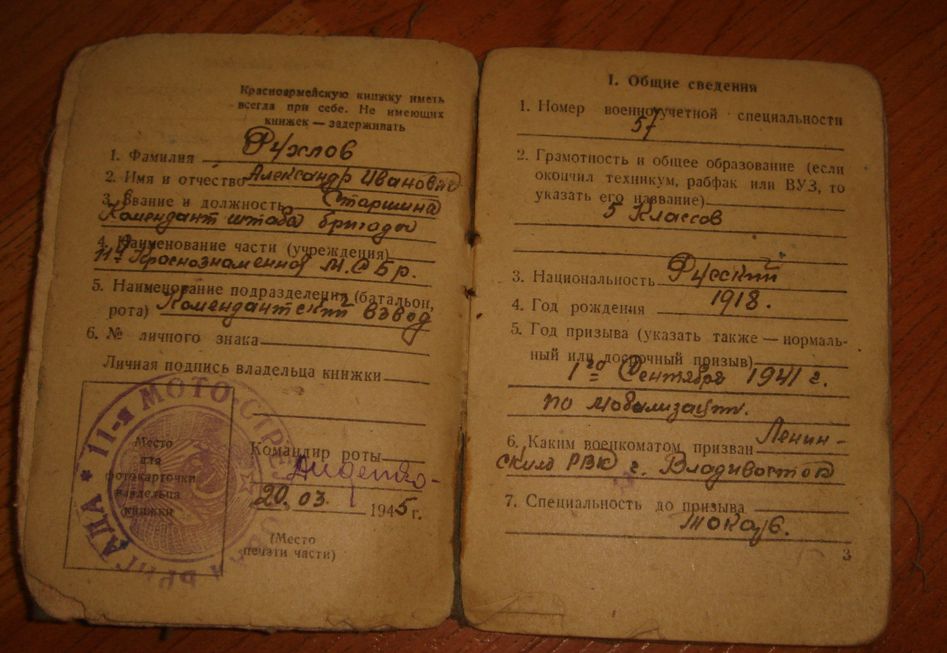 Красноармейскую книжку иметь
всегда при себе. Не имеющих
книжек — задерживать
1. Фамилия Рухлов
2. Имя и отчество Александр Иванович
3. Звание и должность Старшина
Комендант штаба бригады
4. Наименование части (учреждения)
11я Краснознаменной М.С.Бр.
5. Наименование подразделения (батальон,
рота) Комендантский взвод
6. № личного знака
Личная подпись владельца книжки
Место
для
фотокарточки
владельца
книжки
11-я МОТО-СТРЕЛКОВАЯ БРИГАДА
Командир роты
20.03. 1945 г.
(Место
печати части)
I. Общие сведения
1. Номер военноучетной специальности
57
2. Грамотность и общее образование (если
окончил техникум, рабфак или ВУЗ, то
указать его название)
5 Классов
3. Национальность Русский
4. Год рождения 1918.
5. Год призыва (указать также — нормаль-
ный или досрочный призыв)
1го Сентября 1941 г.
по мобилизации.
6. Каким военкоматом призван Ленин-
ским РВК г. Владивосток
7. Специальность до призыва
3